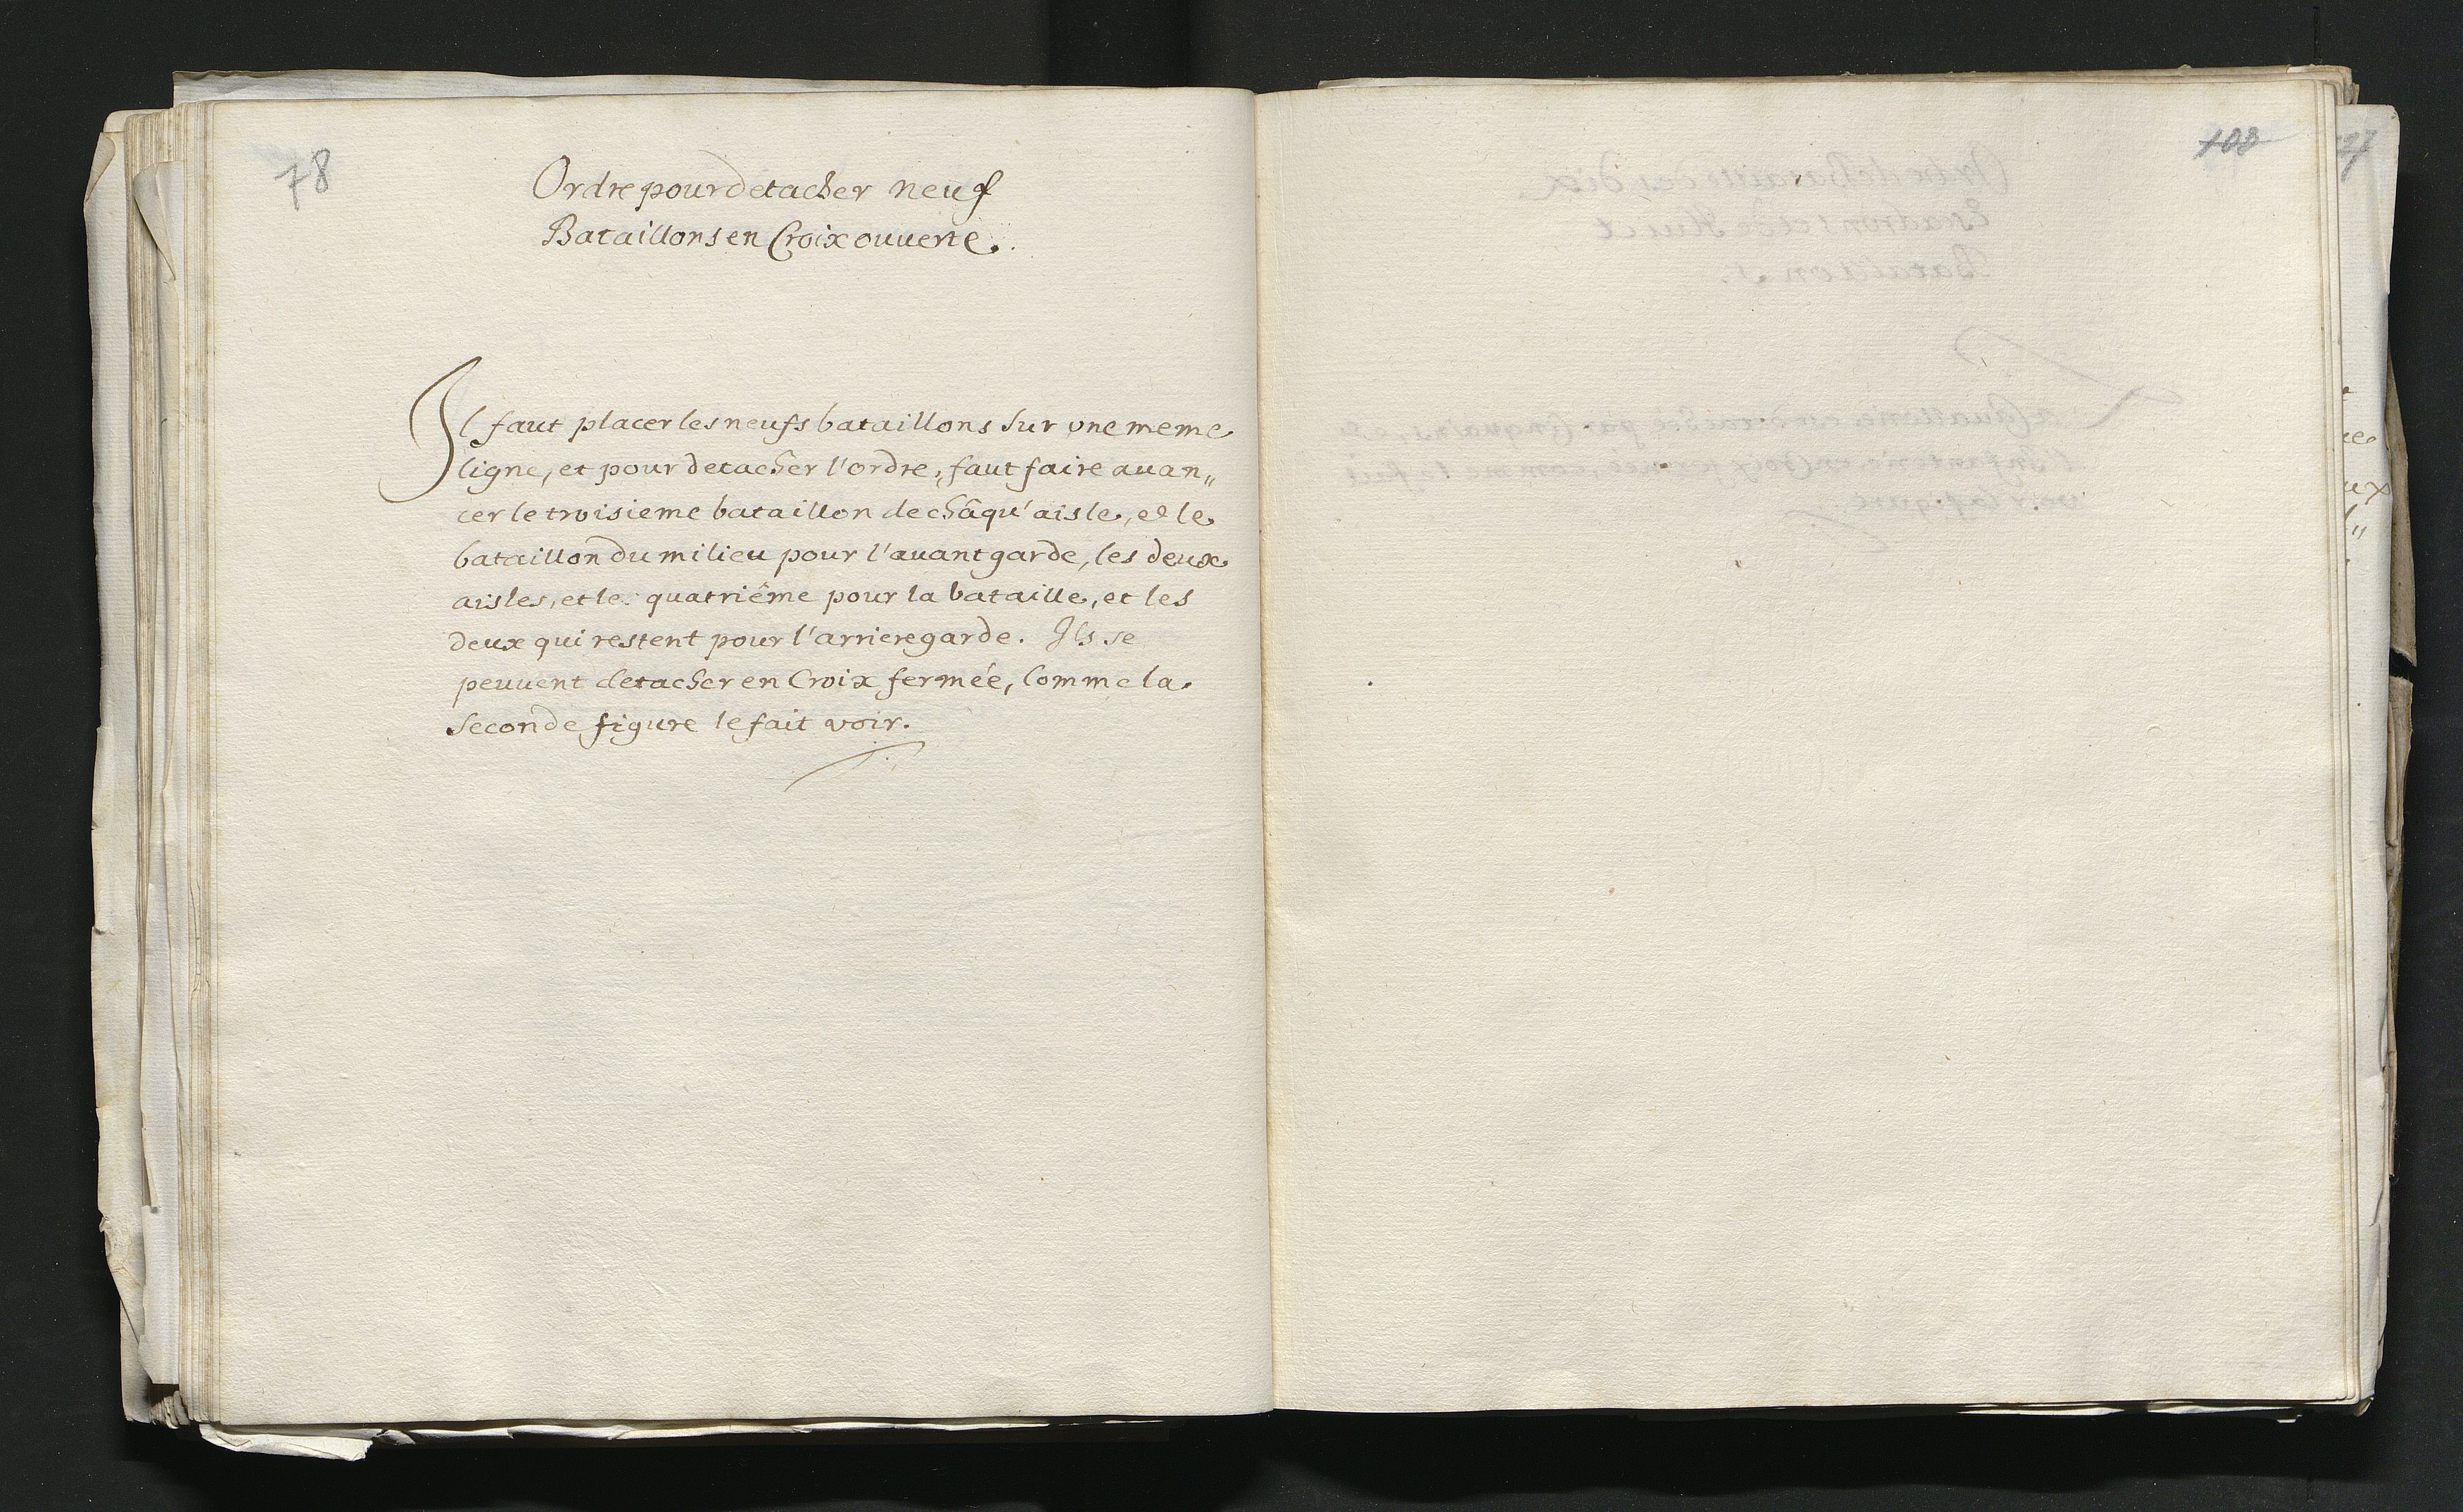 78
Ordre pour detacher neuf
Bataillons en Croix ouuerte.
Il faut placer les neufs bataillons sur vne meme
ligne, et pour detacher l'ordre, faut faire auan„
cer le troisieme bataillon de châqu'aisle, et le
bataillon du milieu pour l'auantgarde, les deux
aisles, et le quatriéme pour la bataille, et les
deux qui restent pour l'arrieregarde. Ils se
peuuent detacher en Croix fermée, comme la
seconde figure le fait voir.
108